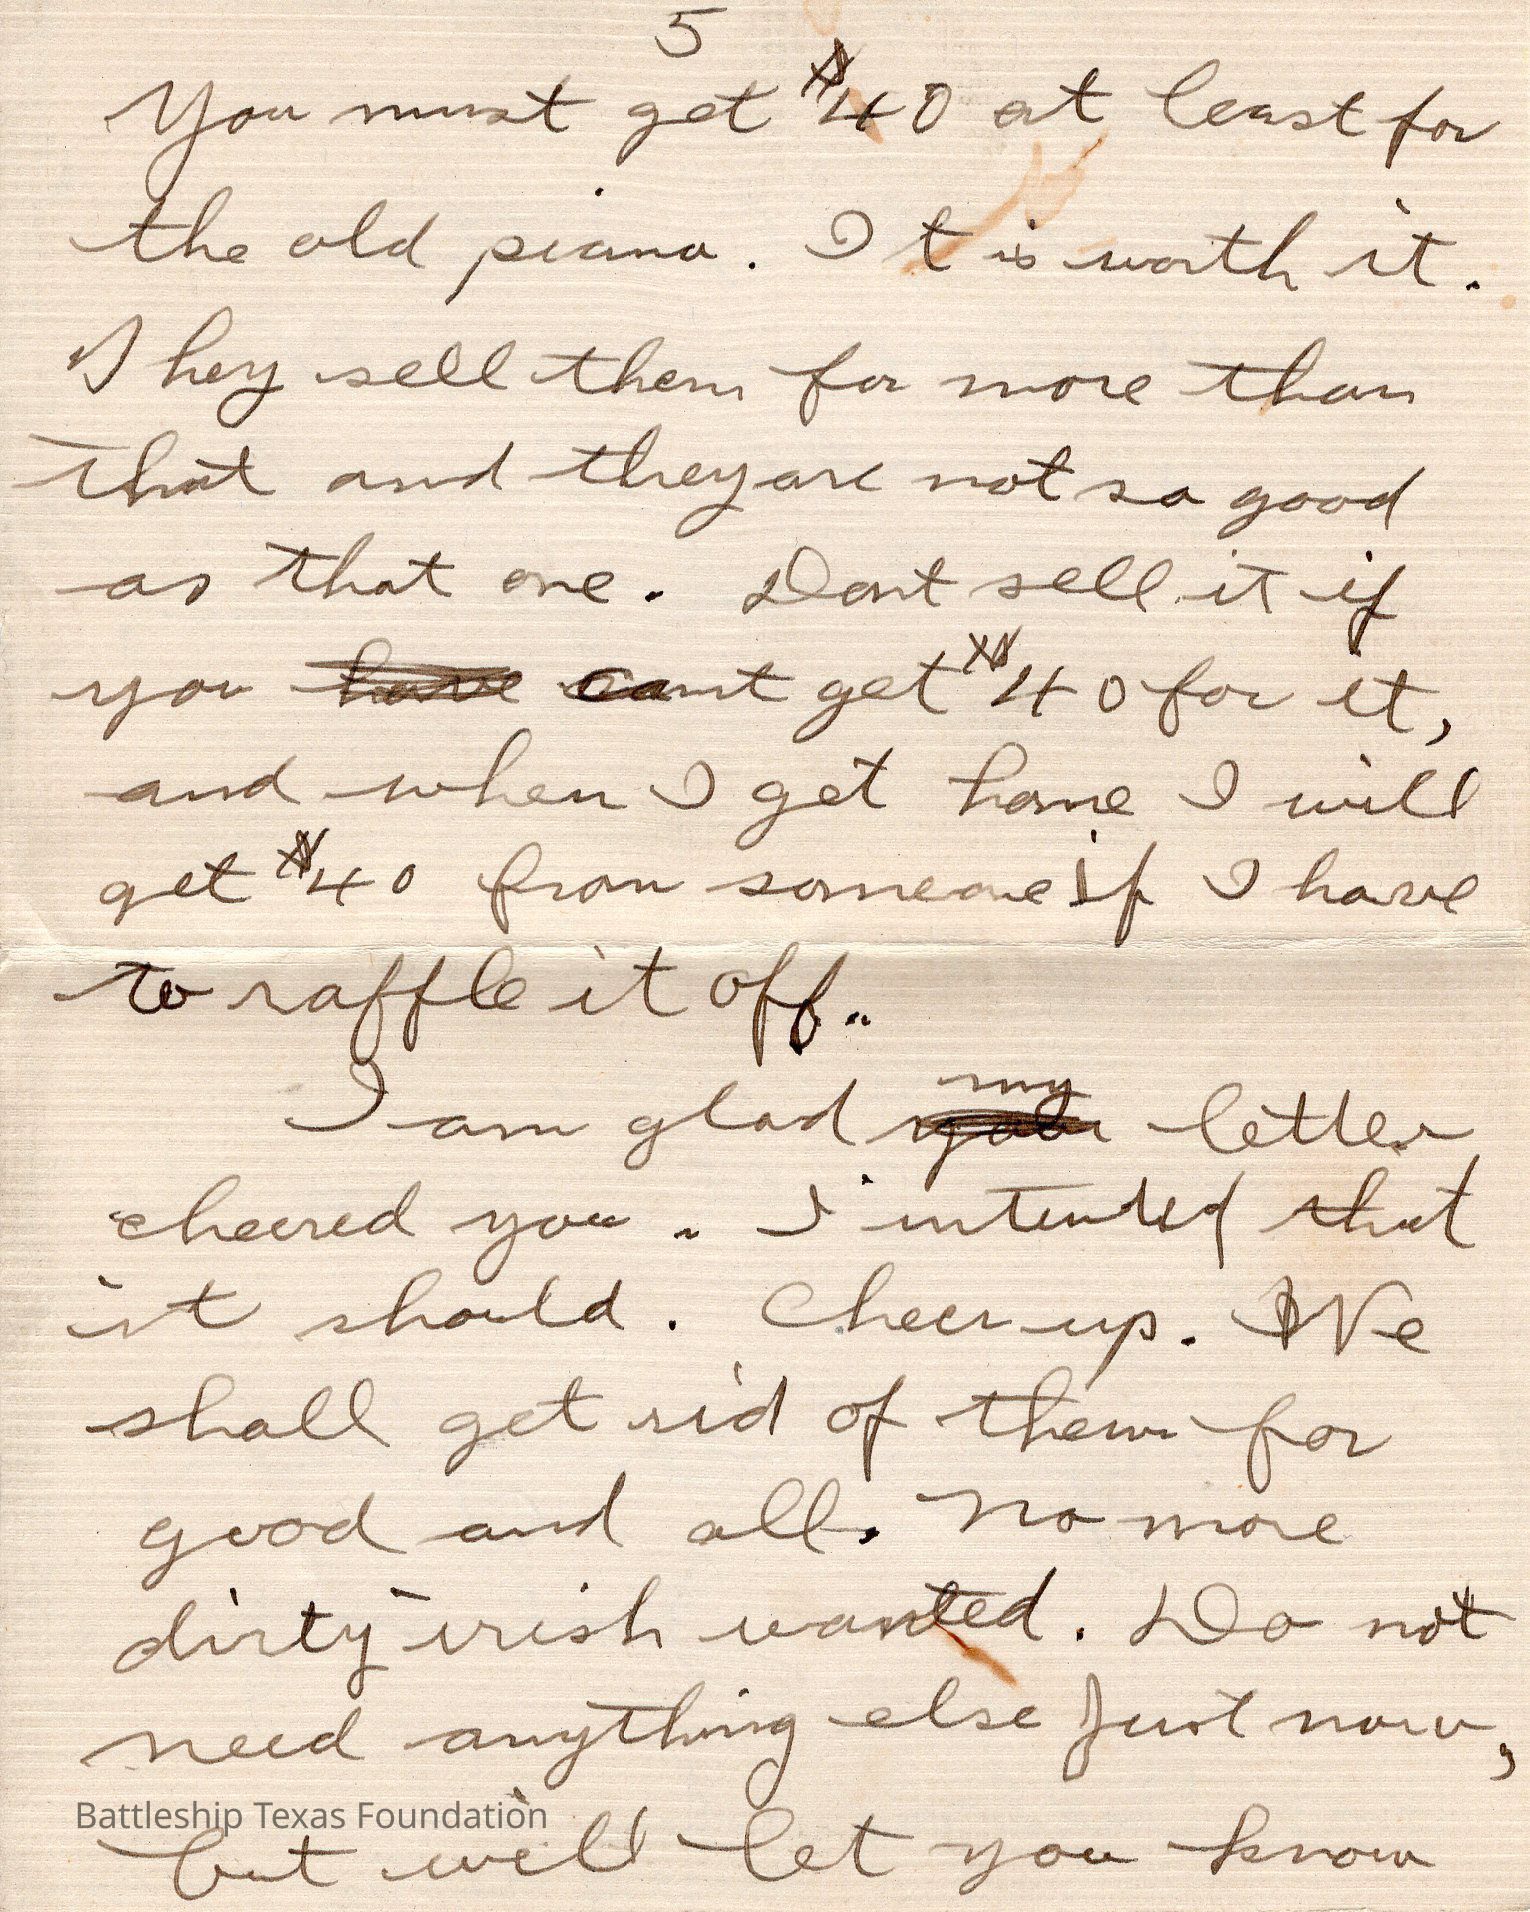 5
You must get $40 at least for
the old piano. It is worth it.
They sell them for more than
that and they are not so good
as that one. Dont sell it if
you have cant get $40 for it,
and when I get home I will
get $40 from someone if I have
to raffle it off.
my
I am glad your letter
cheered you. I intended that
it should. Cheer up. We
shall get rid of them for
good and all. No more
dirty irish wanted. Do not
need anything else just now,
Battleship Texas Foundation
but will let you know